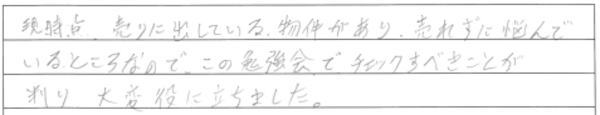 現時点、売りに出している物件があり、売れずに悩んで
いるところなので、この勉強会でチェックすべきことが
判り 大変役に立ちました。